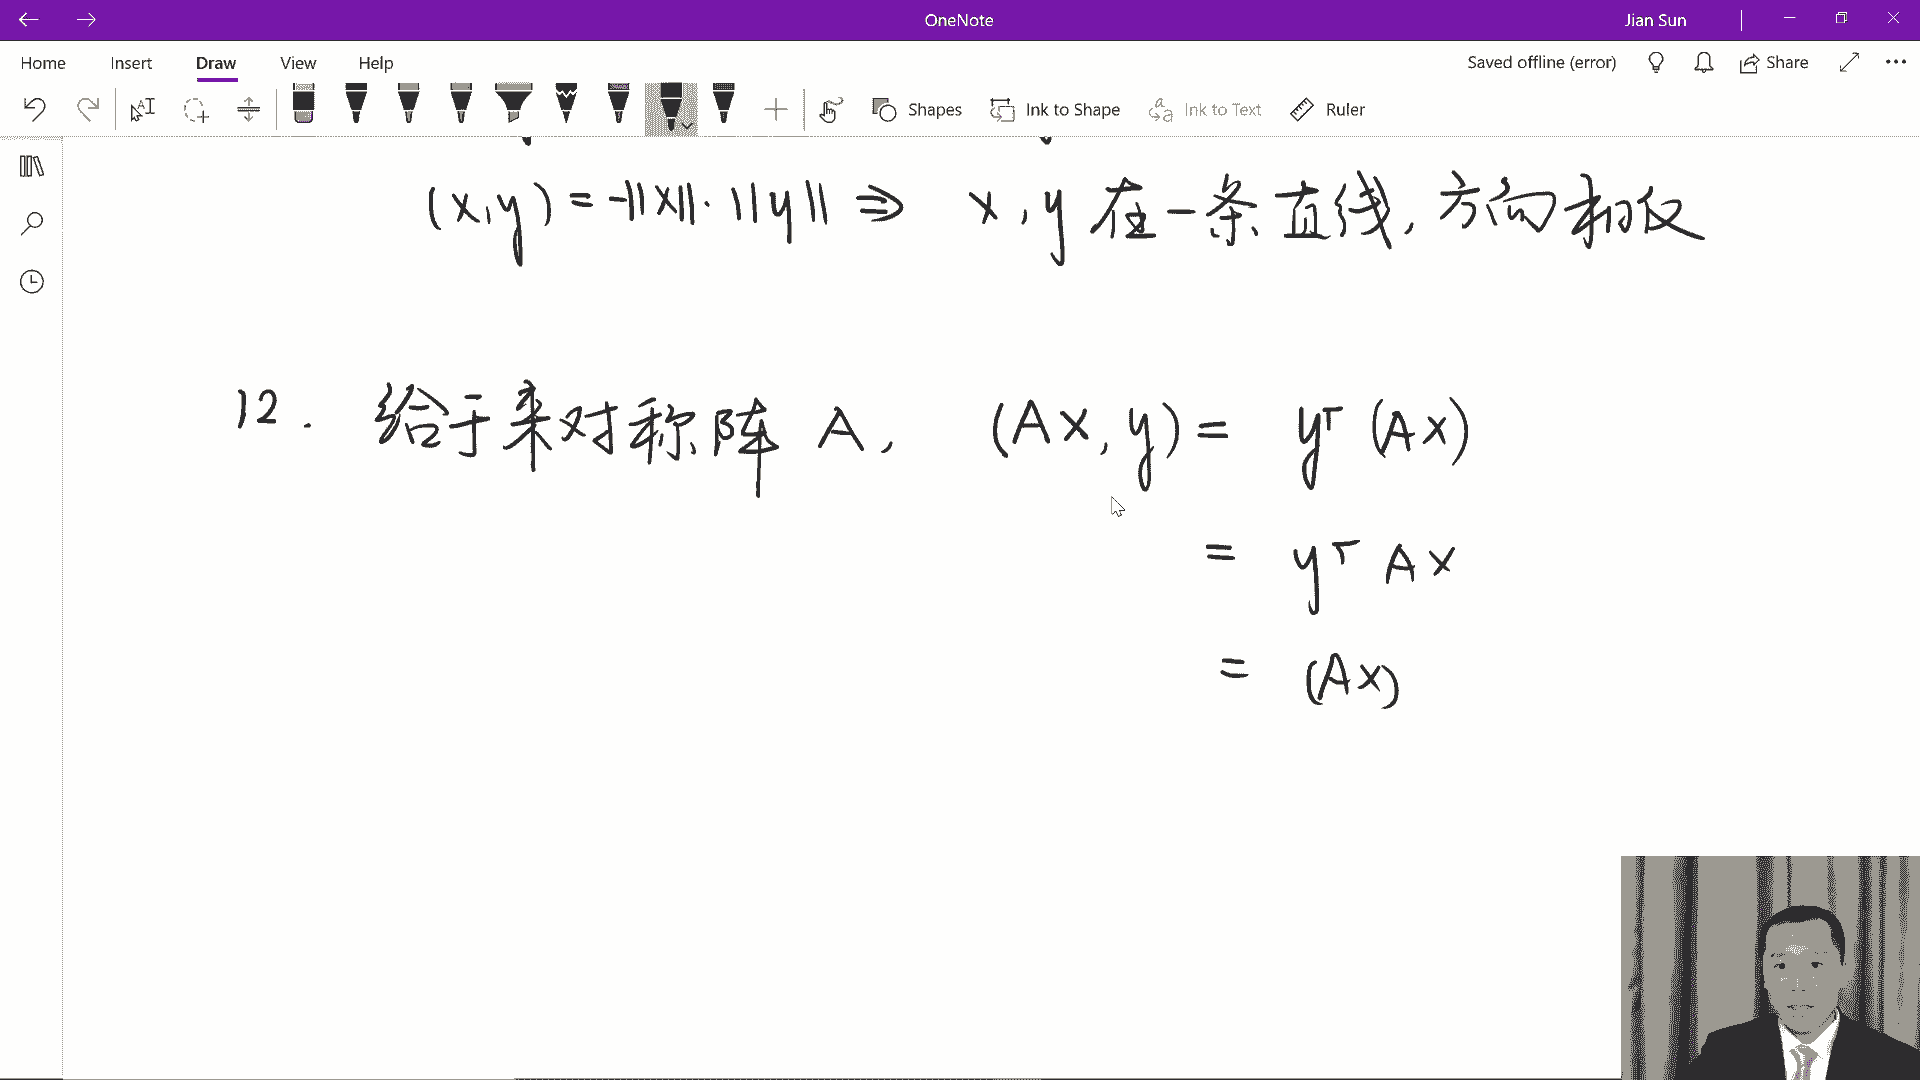 OneNote
Jian Sun
Home Insert Draw View Help
Saved offline (error)
Share
Shapes
Ink to Shape
Ink to Text
Ruler
(x,y) = -||x||·||y|| ⇒ x,y 在一条直线,方向相反
12. 给于来对称阵 A, (Ax,y) = yᵀ(Ax)
= yᵀAx
= (Ax)